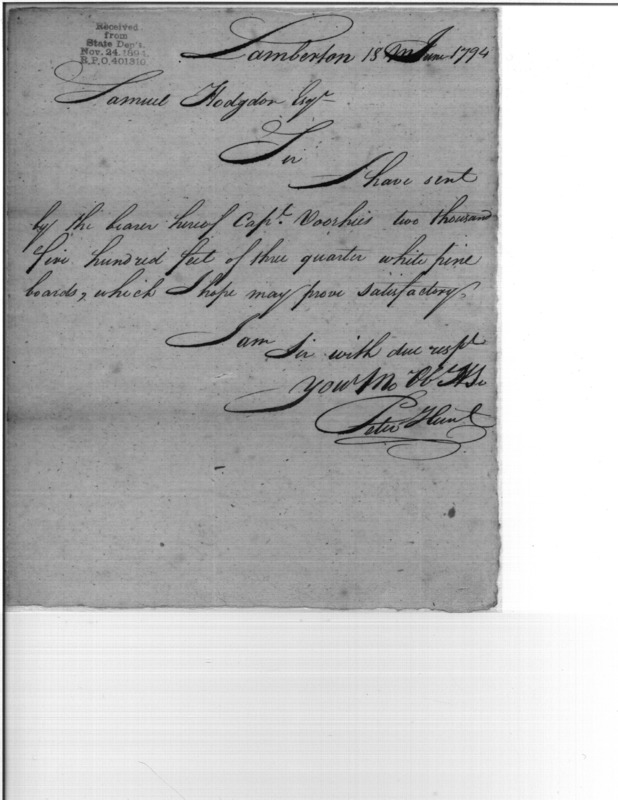 Received
from
State Dep't.
Nov. 24. 1894.
R.P.O. 401310.
Lamberton 18 June 1794
Samuel Hodgdon Esqr
Sir
I have sent
by the bearer hereof Capt. Voorhies two thousand
five hundred feet of three quarter white pine
boards, which I hope may prove satisfactory
I am Sir with due respt
your Mo Ob
Peter Hunt